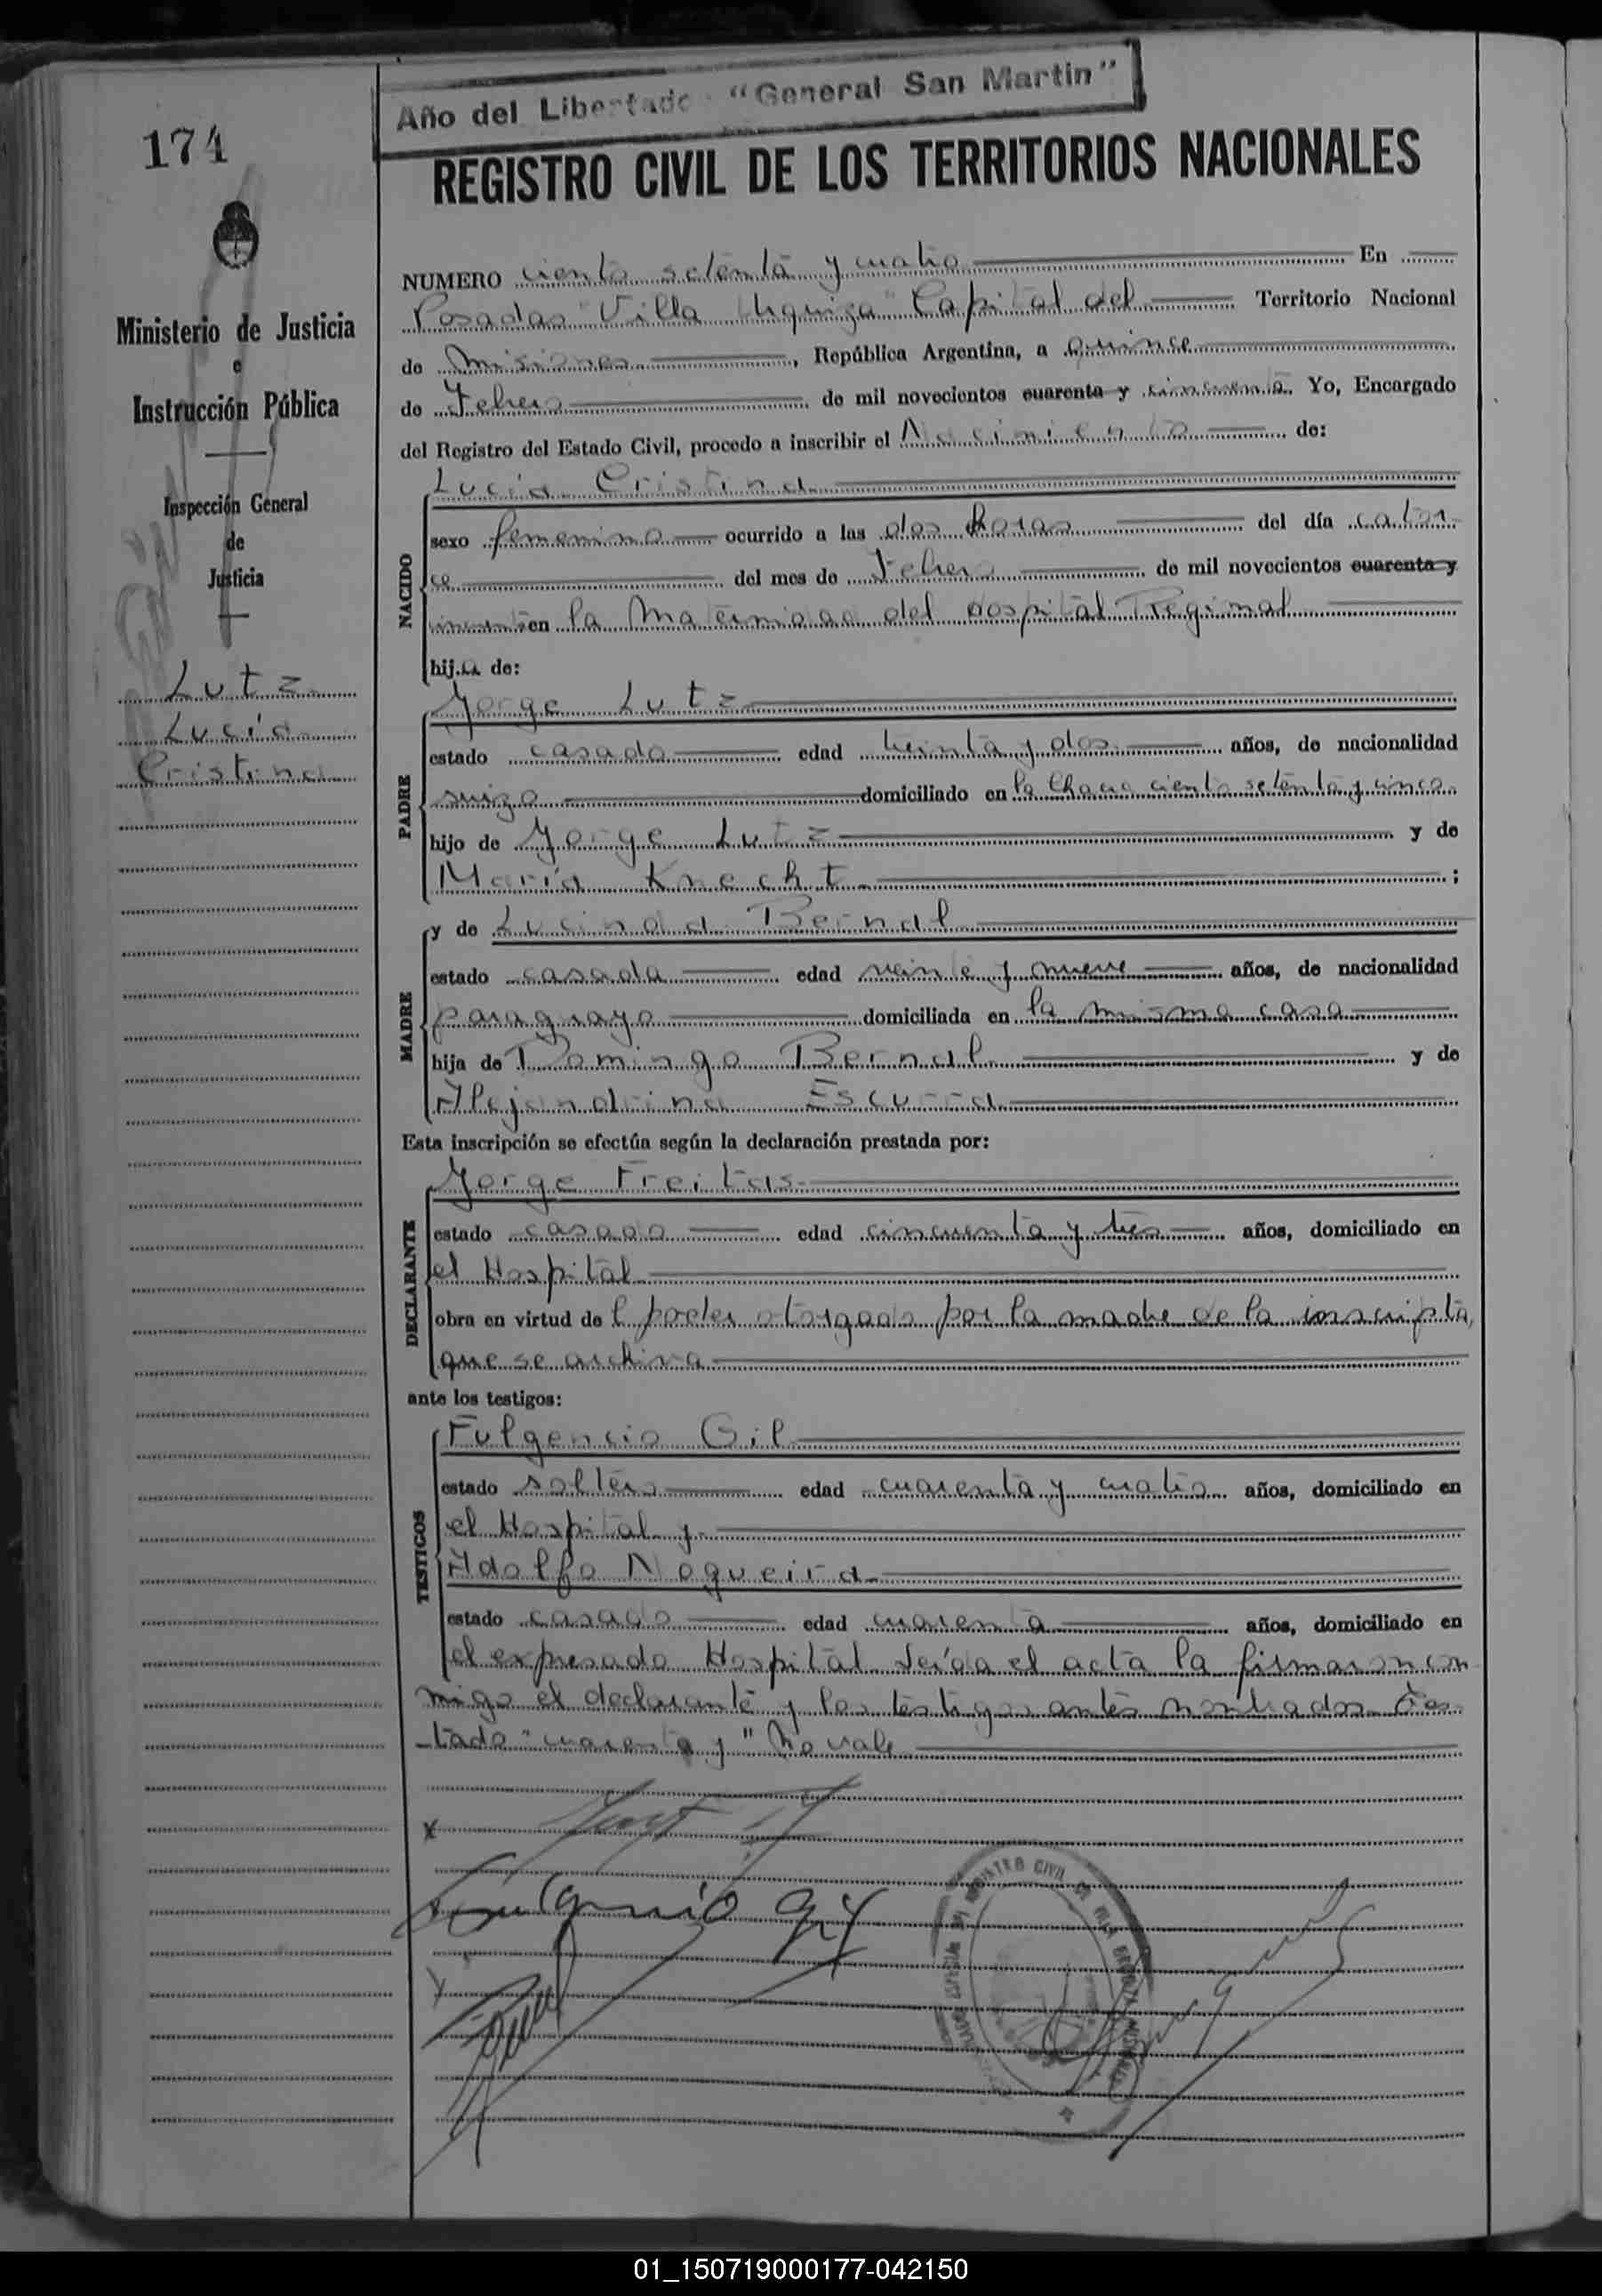 Año del Libertador "General San Martin"
174
REGISTRO CIVIL DE LOS TERRITORIOS NACIONALES
Ministerio de Justicia
e
Instrucción Pública
Inspección General
de
Justicia
Lutz
Lucía
Cristina
NUMERO ciento setenta y cuatro En
Posadas "Villa Urquiza" Capital del Territorio Nacional
de Misiones, República Argentina, a quince
de Febrero de mil novecientos cuarenta y cincuenta. Yo, Encargado
del Registro del Estado Civil, procedo a inscribir el Nacimiento de:
NACIDO
Lucía Cristina
sexo femenino ocurrido a las dos horas del día cator-
ce del mes de Febrero de mil novecientos cuarenta y
cincuenta en la Maternidad del Hospital Regional
hij.a de:
PADRE
Jorge Lutz
estado casado edad treinta y dos años, de nacionalidad
suizo domiciliado en la Chacra ciento setenta y cinco
hijo de Jorge Lutz y de
María Knecht ;
MADRE
y de Lucinda Bernal
estado casada edad veinte y nueve años, de nacionalidad
paraguaya domiciliada en la misma casa
hija de Domingo Bernal y de
Alejandrina Escurra
Esta inscripción se efectúa según la declaración prestada por:
DECLARANTE
Jorge Freitas
estado casado edad cincuenta y tres años, domiciliado en
el Hospital
obra en virtud de l poder otorgado por la madre de la inscripta,
que se archiva
ante los testigos:
TESTIGOS
Fulgencio Gil
estado soltero edad cuarenta y cuatro años, domiciliado en
el Hospital y
Adolfo Nogueira
estado casado edad cuarenta años, domiciliado en
el expresado Hospital. Leída el acta la firmaron con
migo el declarante y los testigos antes nombrados. Tes-
tado "cuarenta y" No vale
x
Fulgencio Gil
REGISTRO CIVIL
01_150719000177-042150